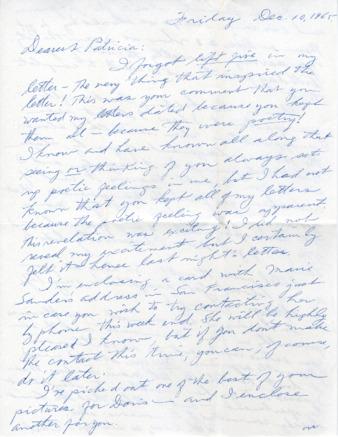 Friday Dec. 10, 1965
Dearest Patricia:
I forgot left five in my
letter – the very thing that inspired the
letter! This was your comment that you
wanted my letters dated because you kept
them all – because they were poetry!
I know and have known all along that
seeing or thinking of you always set
up poetic feelings in me, but I had not
known that you kept all of my letters
because the poetic feeling was apparent.
this revelation was exciting! I did not
reveal my excitement but I certainly
felt it – hence last night's letter.
I'm enclosing a card with Marie
Sanders address in San Francisco just
in case you wish to try contacting her
by phone this week end. She will be highly
pleased I know, but if you don't make
the contact this time, you can, of course,
do it later.
I've picked out one of the best of your
pictures for Doris – and I enclose
another for you.